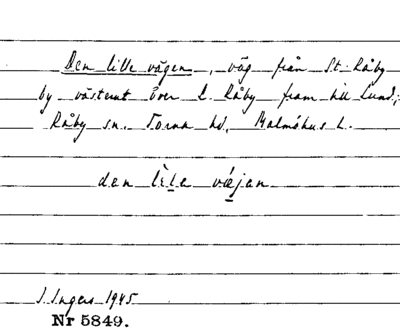 Den lille vägen, väg från St. Råby
by västerut över L. Råby fram till Lund;
Råby sn. Torna hd. Malmöhus L.
den lìle væjen
I. Ingers 1945
Nr 5849.